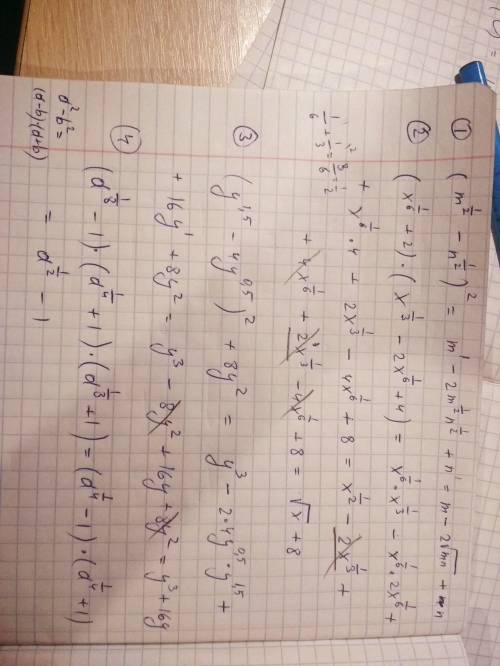 ① (m^{1/2} - n^{1/2})^2 = m^1 - 2m^{1/2}n^{1/2} + n^1 = m - 2√mn + n
② (x^{1/6} + 2)·(x^{1/3} - 2x^{1/6} + 4) = x^{1/6}·x^{1/3} - x^{1/6}·2x^{1/6} +
+ x^{1/6}·4 + 2x^{1/3} - 4x^{1/6} + 8 = x^{1/2} - 2x^{1/3} +
+ 4x^{1/6} + 2x^{1/3} - 4x^{1/6} + 8 = √x + 8
③ (y^{1,5} - 4y^{0,5})^2 + 8y^2 = y^3 - 2·4y^{0,5}·y^{1,5} +
+ 16y^1 + 8y^2 = y^3 - 8y^2 + 16y + 8y^2 = y^3 + 16y
④ (a^{1/8} - 1)·(a^{1/4} + 1)·(a^{1/8} + 1) = (a^{1/4} - 1)·(a^{1/4} + 1)
= a^{1/2} - 1
a^2 - b^2 =
(a-b)·(a+b)